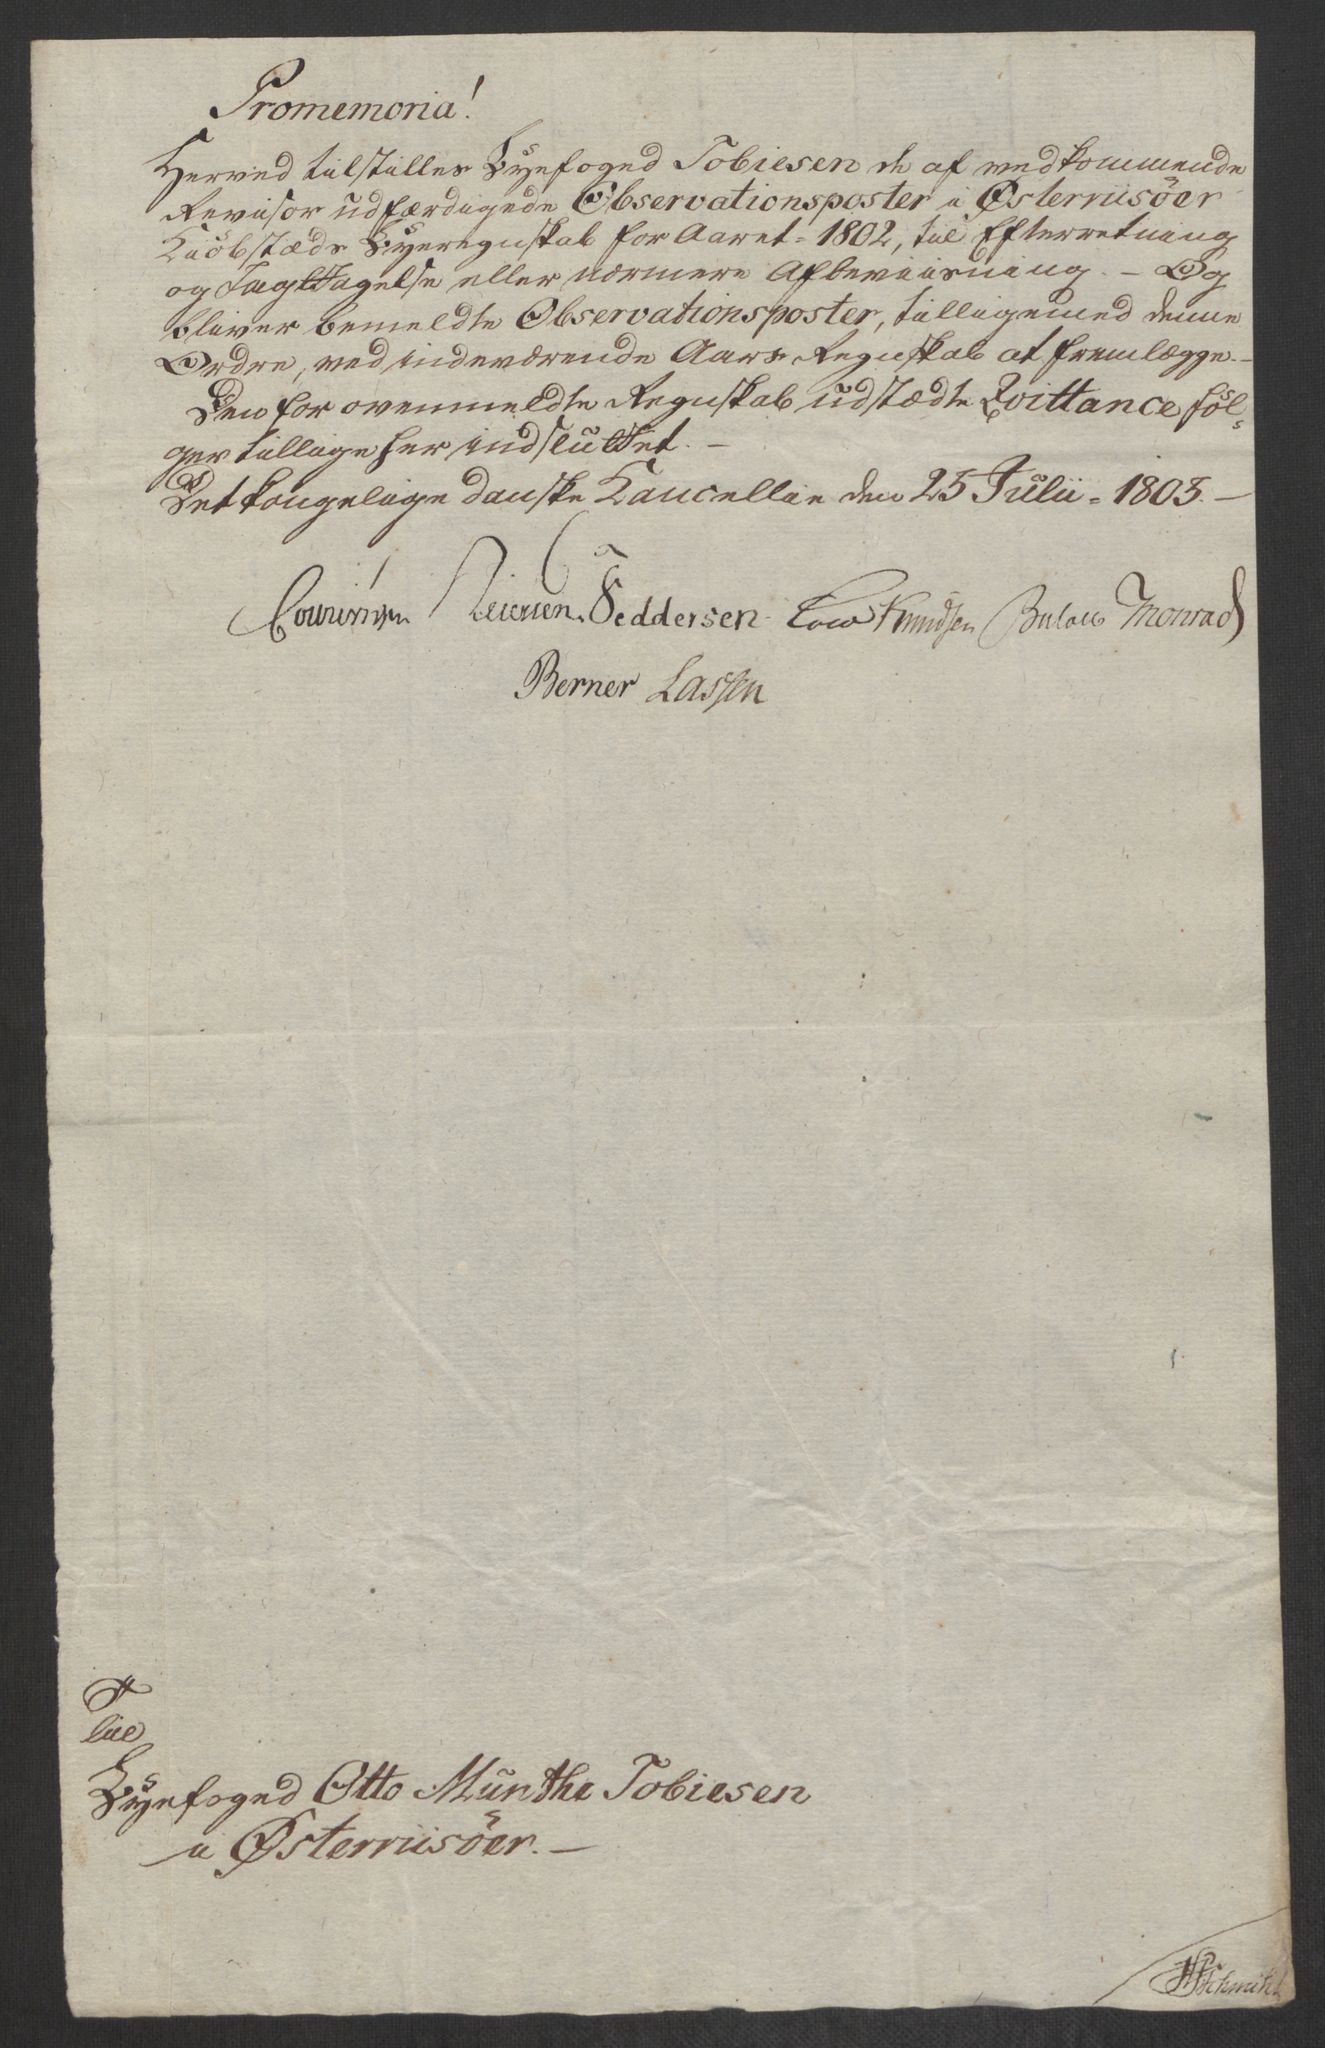 Promemoria!
Herved tilstilles Byefoged Tobiesen de af vedkommende
Revisor udfærdigede Observationsposter i Østerriisöer
Kiöbstæds Byeregnskab for Aaret 1802, til Efterretning
og Iagttagelse eller nærmere Afbeviisning. - Og
bliver bemeldte Observationsposter, tilligemed denne
Ordre, ved indeværende Aars Regnskab at fremlægge. -
Den for ovenmeldte Regnskab udstædte Qvittance föl-
ger tillige her indsluttet. -
Det kongelige danske Cancellie den 25 Julii - 1803. -
Feddersen Knudsen Bülow Monrad
Berner Lassen
Til
Byefoged Otto Münthe Tobiesen
i Østerriisöer. -